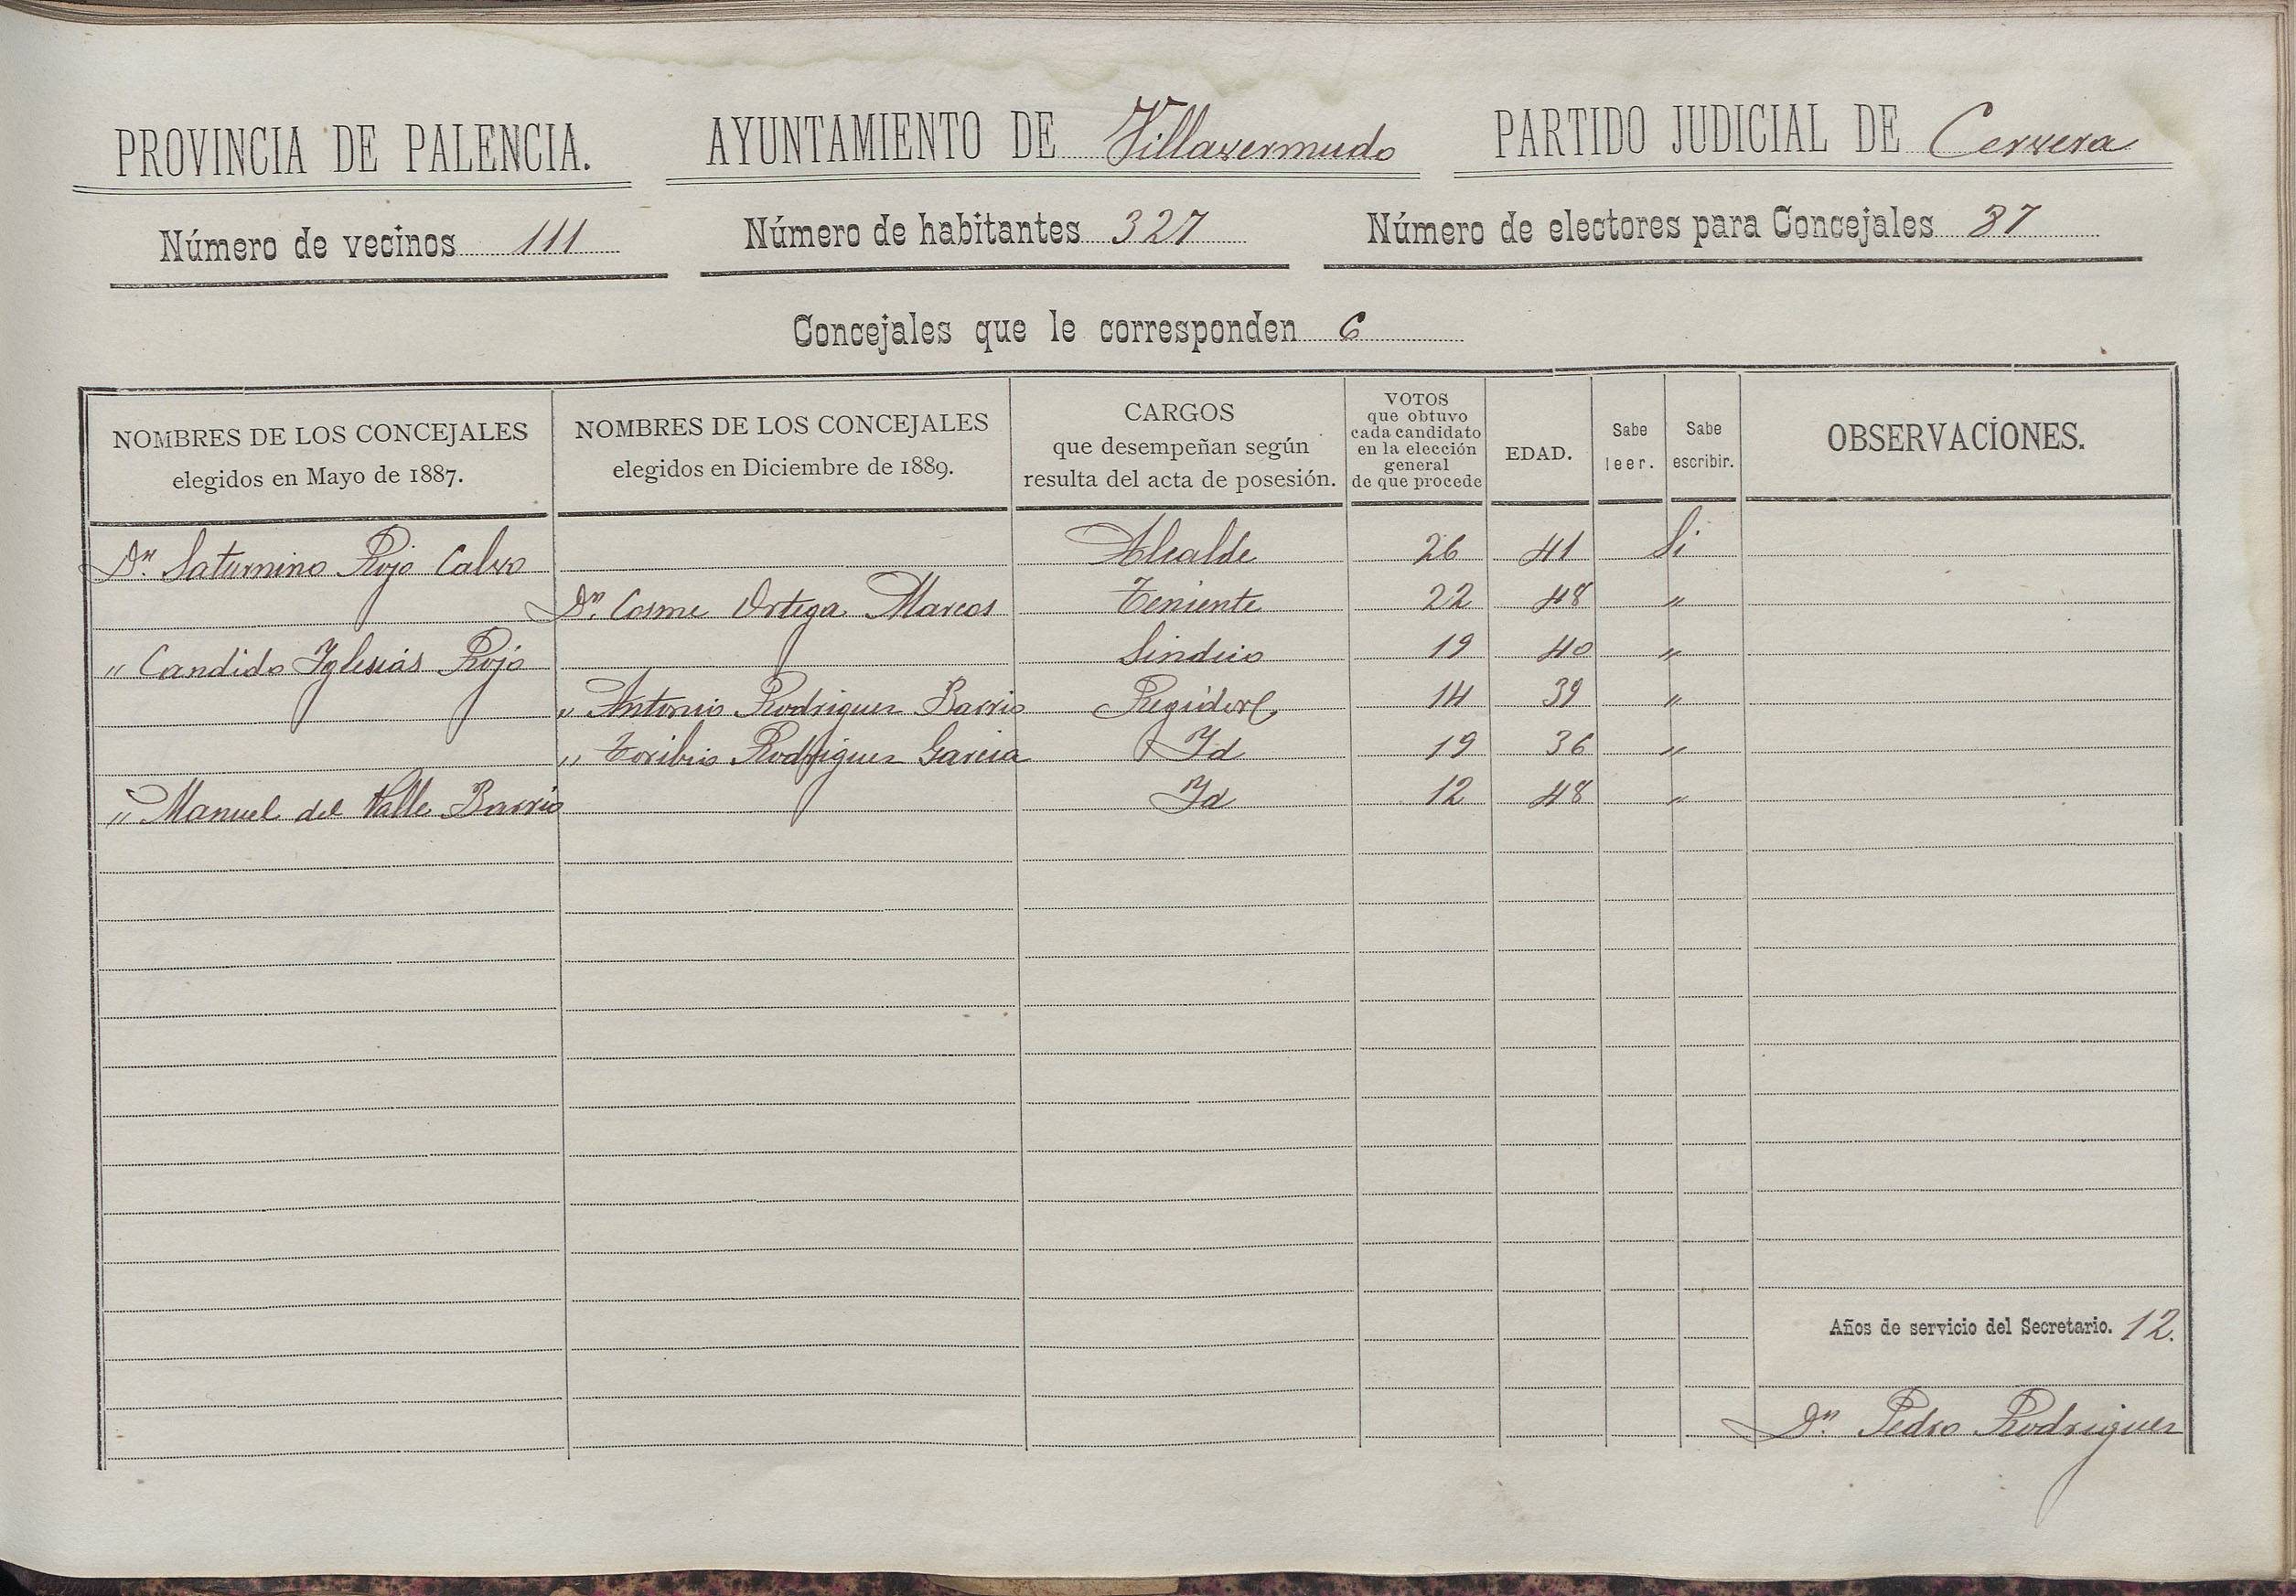 PROVINCIA DE PALENCIA. AYUNTAMIENTO DE Villavermudo PARTIDO JUDICIAL DE Cervera
Número de vecinos 111 Número de habitantes 327 Número de electores para Concejales 87
Concejales que le corresponden 6
NOMBRES DE LOS CONCEJALES
elegidos en Mayo de 1887.
NOMBRES DE LOS CONCEJALES
elegidos en Diciembre de 1889.
CARGOS
que desempeñan según
resulta del acta de posesión.
VOTOS
que obtuvo
cada candidato
en la elección
general
de que procede
EDAD.
Sabe
leer.
Sabe
escribir.
OBSERVACIONES.
Dn. Saturnino Rojo Calvo Alcalde 26 41 Si
Dn. Cosme Ortega Marcos Teniente 22 48 "
" Candido Yglesias Rojo Sindico 19 40 "
" Antonio Rodriguez Barrio 14 39 "
" Toribio Rodriguez Garcia Yd 19 36 "
" Manuel del Valle Barrio Yd 12 48 "
Años de servicio del Secretario. 12.
Dn. Pedro Rodriguez